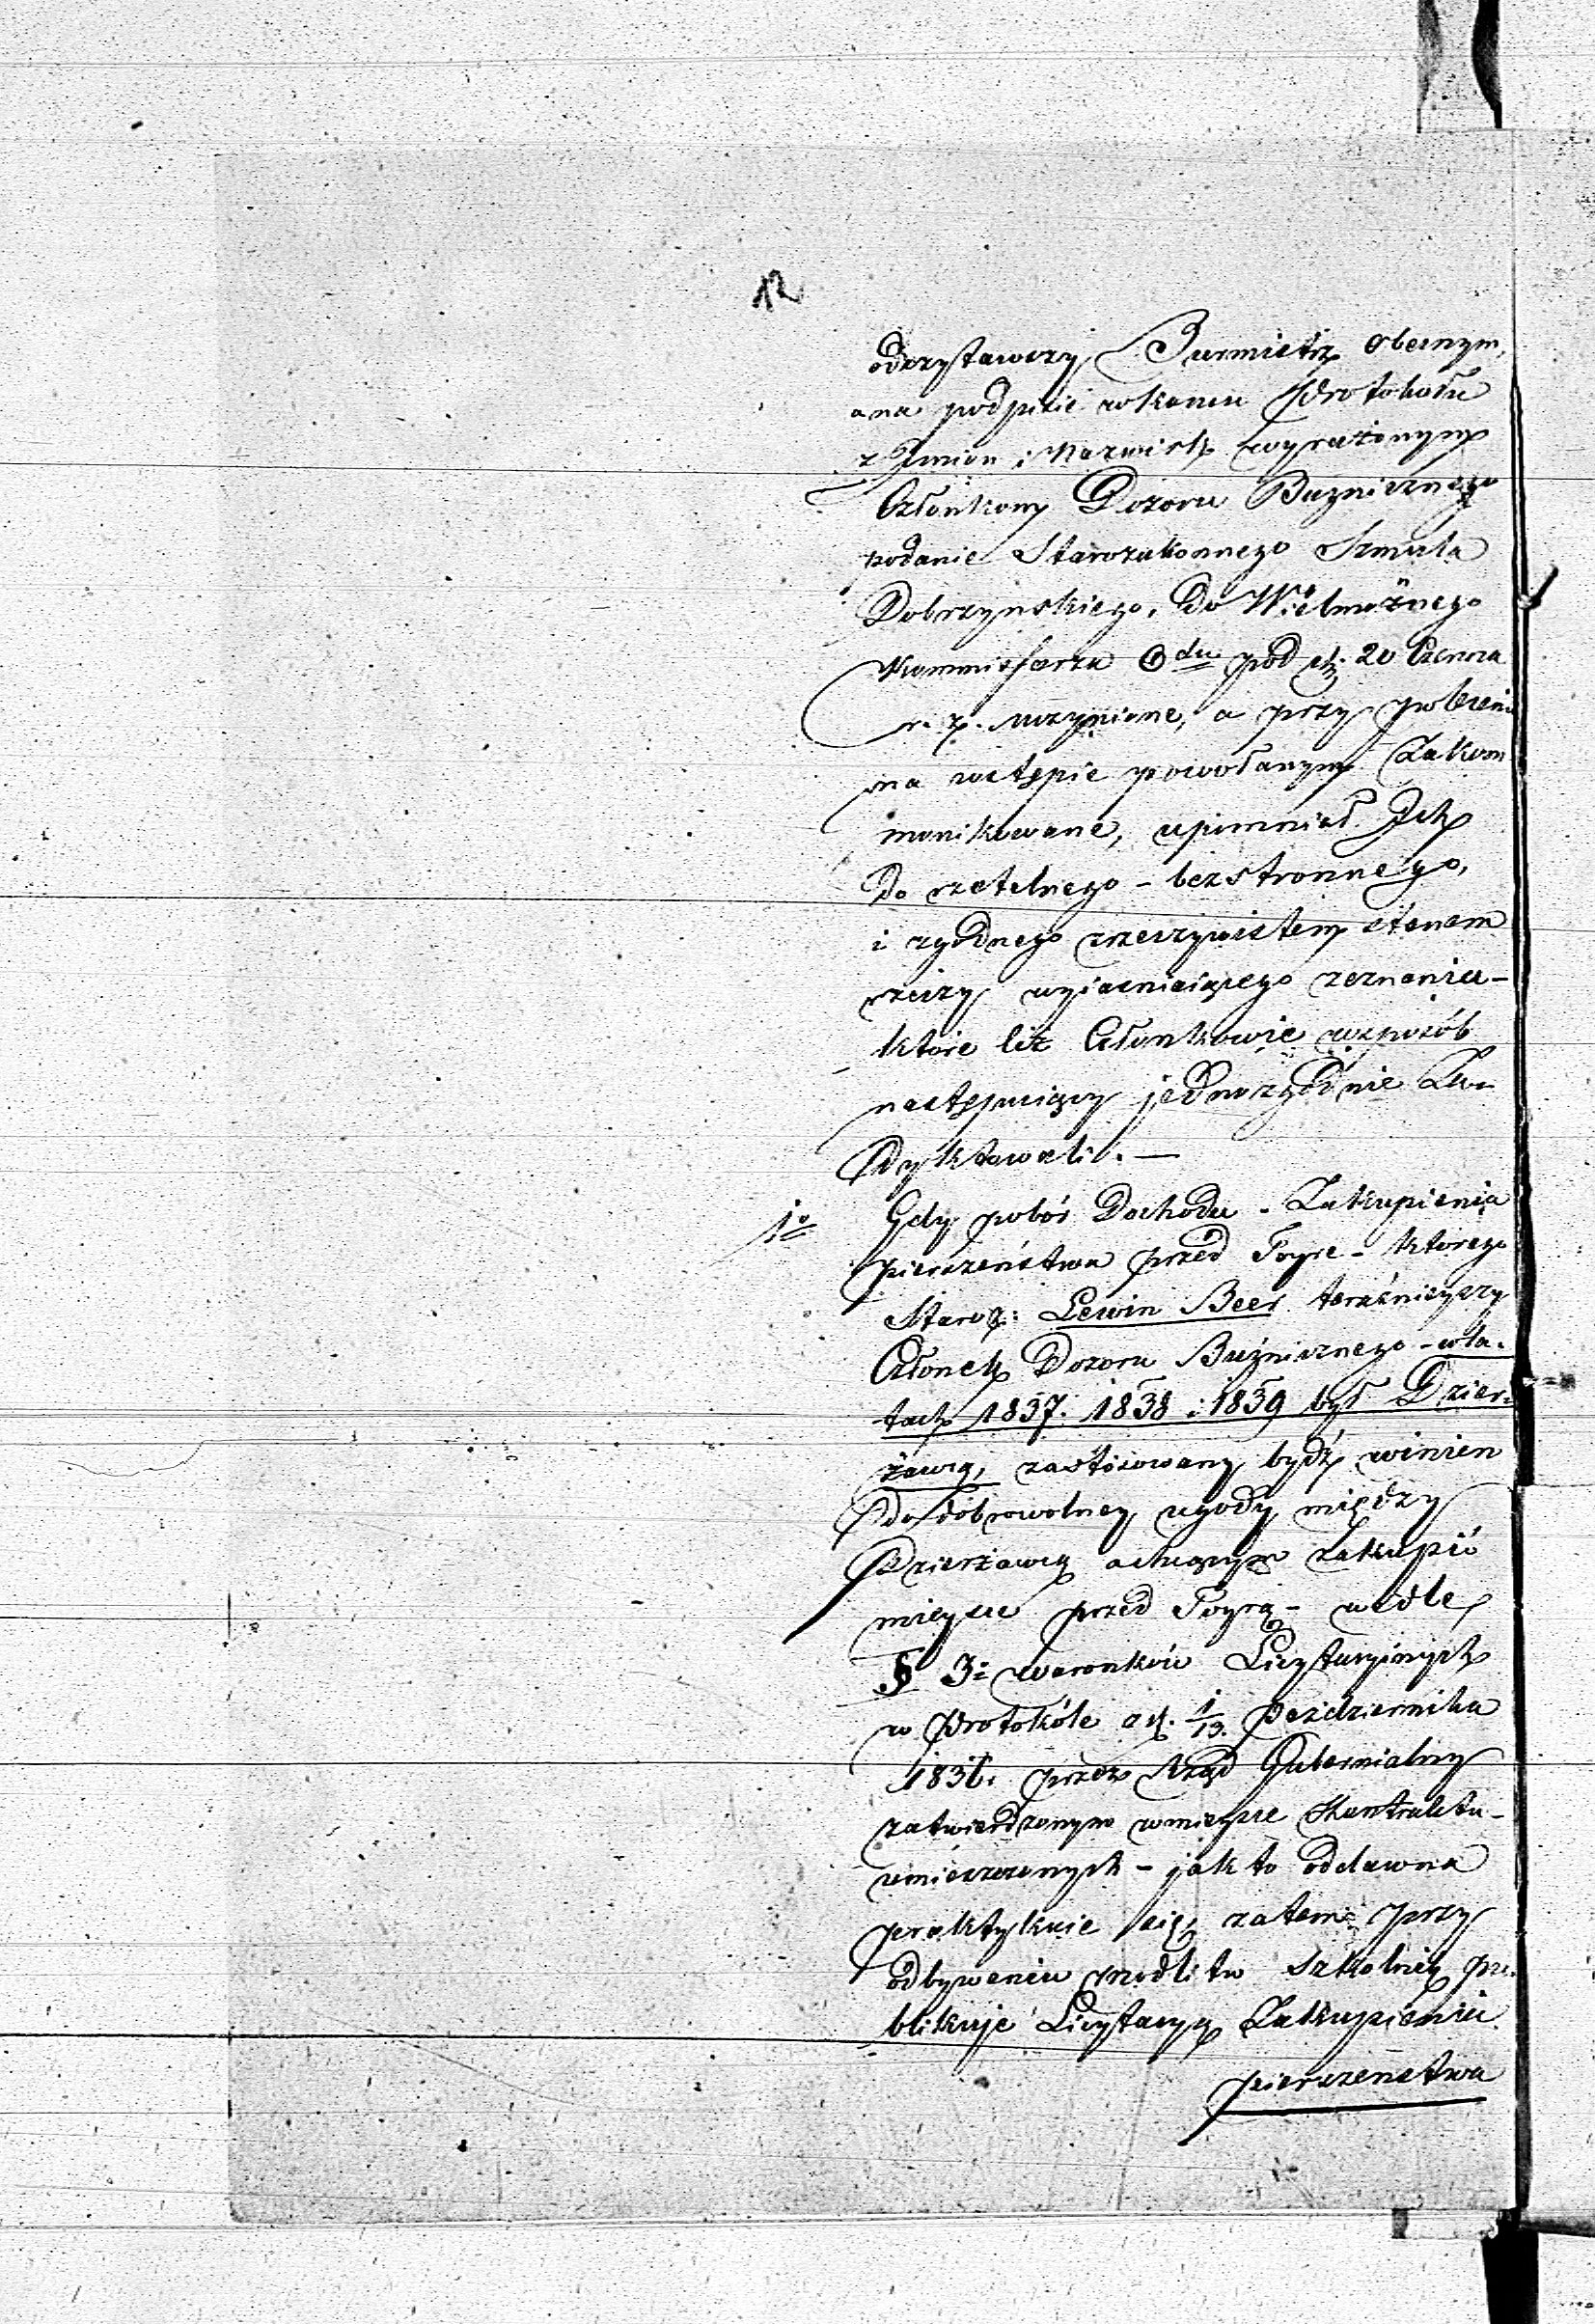 12
odczytawszy Burmistrz obecnym,
a na podpisie w końcu Protokołu
z Imion i Nazwisk wyrażonym
Członkom Dozoru Bużnicznego
podanie Starozakonnego Szmula
Dobrzynskiego, do Wielmożnego
Kommissarza Odu pod d. 20 Czerwca
r. z. uczynione, a przy poleceniu
na wstępie powołanym Zakom
monikowane, upomniał Ich
do rzetelnego - bezstronnego,
i zgodnego zrzeczywistem stanem
rzeczy wyiaśniaiącego zeznania -
które ciż Członkowie wsposób
następuiący jednozgodnie Za-
dyktowali. —
1o Gdy pobór Dochodu - Zakupienia
pierszeństwa przed Torze - którego
Staroz: Lewin Beer teraźnieyszy
Członek Dozoru Bużnicznego - wla-
tach 1837. 1838 i 1839 był Dzier-
żawcą, zastósowany bydź winien
do dobrowolney ugody między
Dzierżawcą a chcącym zakupić
mieysce przed Torą - wedle
§ 3o warunków Licytacyinych
w Protokóle a d. 1/13. Października
1836. przez Rząd Gubernialny
zatwierdzonym wmieysce Kontraktu -
umieszczonych - jak to oddawna
praktykuie się, zatem przy
odbywaniu modlitw szkolnik pu-
blikuje Licytacyę Zakupienia
pierszeństwa